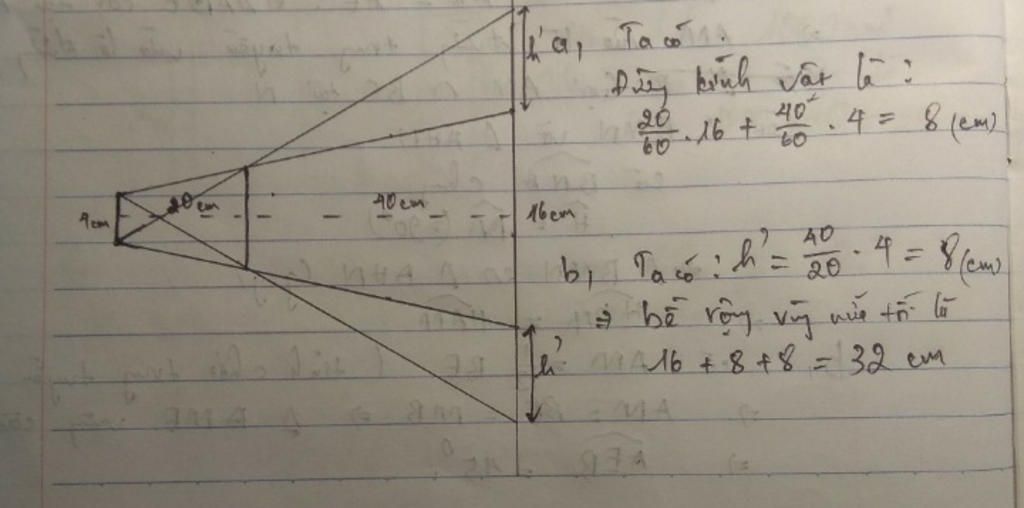 h' a, Ta có :
Đường kính vật là :
20/60 . 16 + 40/60 . 4 = 8 (cm)
4cm 20cm 40cm 16cm
b, Ta có : h' = 40/20 . 4 = 8 (cm)
⇒ bề rộng vùng nửa tối là
h' 16 + 8 + 8 = 32 cm